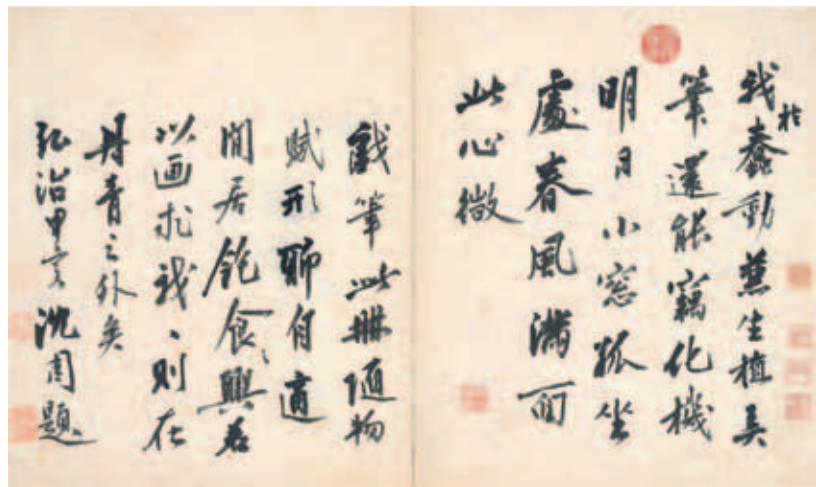 我於蠢動兼生植弄
筆還能竊化機
明日小窓孤坐
處春風滿面
此心微
戲筆此冊随物
賦形聊自適
閒居飽食之興若
以画求我、則在
丹青之外矣
弘治甲寅沈周題